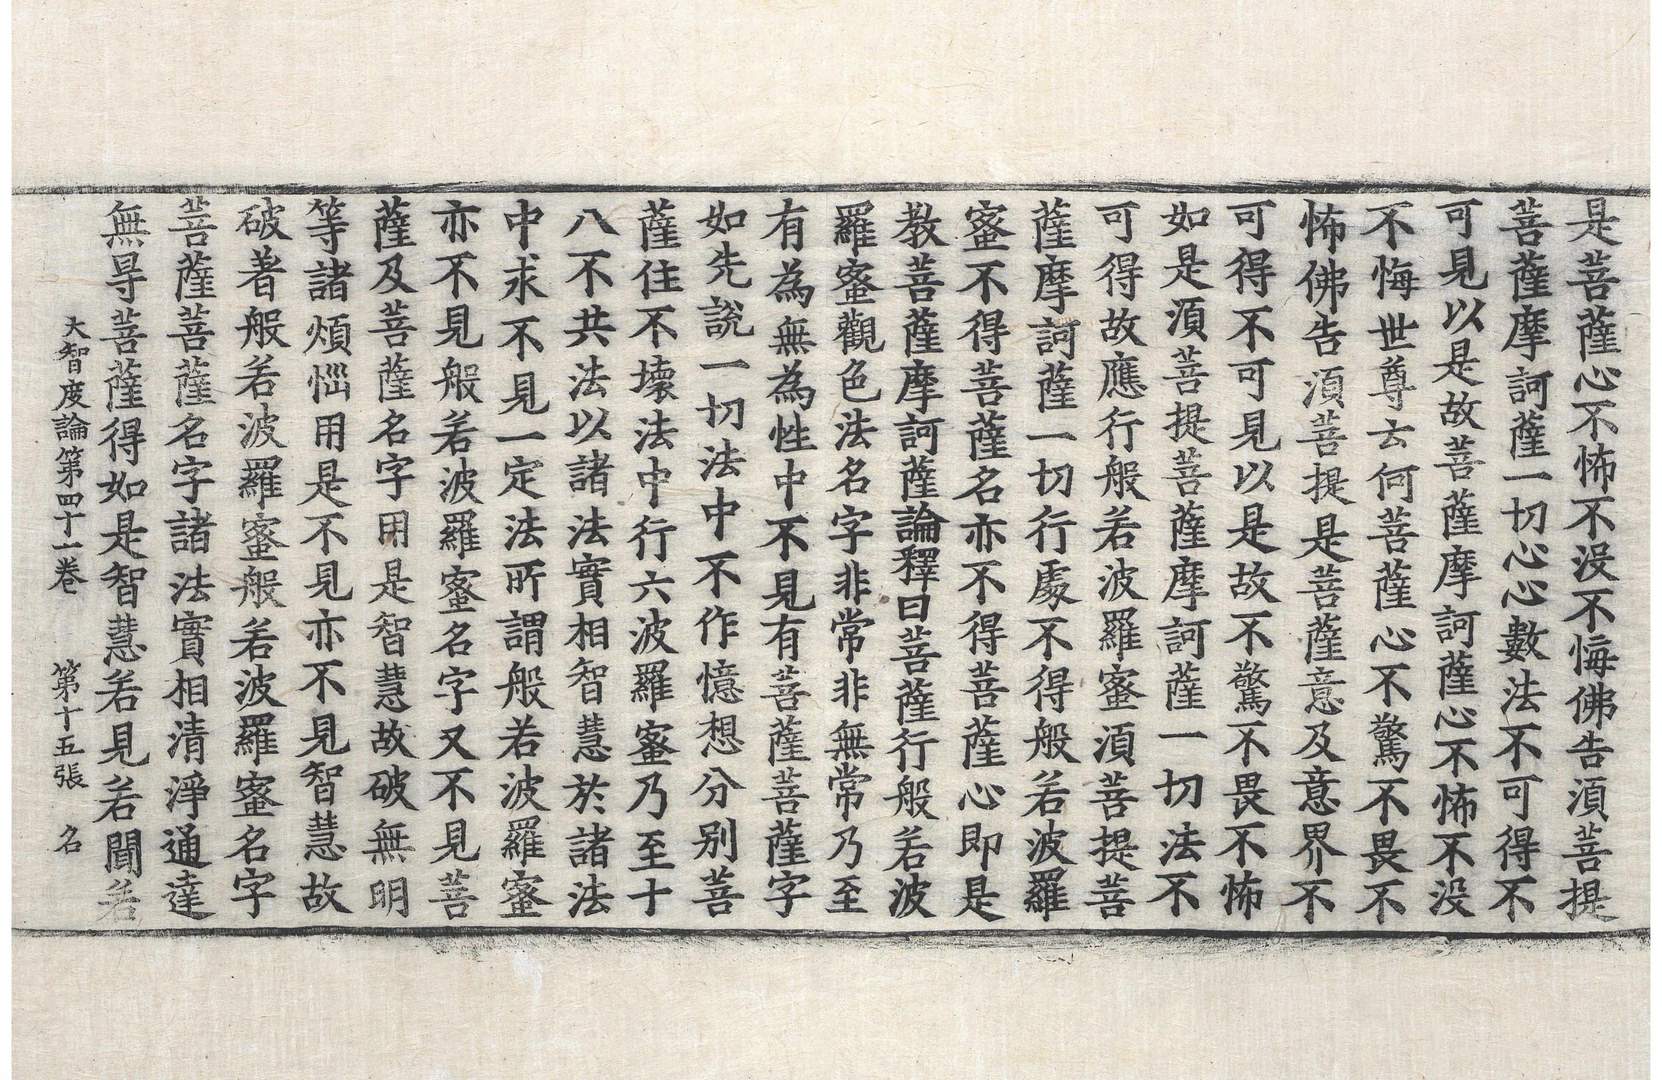 是菩薩心不怖不没不悔佛告湏菩提
菩薩摩訶薩一切心心數法不可得不
可見以是故菩薩摩訶薩心不怖不没
不悔世尊云何菩薩心不驚不畏不
怖佛告湏菩提是菩薩意及意界不
可得不可見以是故不驚不畏不怖
如是湏菩提菩薩摩訶薩一切法不
可得故應行般若波羅蜜湏菩提菩
薩摩訶薩一切行處不得般若波羅
蜜不得菩薩名亦不得菩薩心即是
教菩薩摩訶薩論釋曰菩薩行般若波
羅蜜觀色法名字非常非無常乃至
有為無為性中不見有菩薩菩薩字
如先說一切法中不作憶想分別菩
薩住不壞法中行六波羅蜜乃至十
八不共法以諸法實相智慧於諸法
中求不見一定法所謂般若波羅蜜
亦不見般若波羅蜜名字又不見菩
薩及菩薩名字用是智慧故破無明
等諸煩惱用是不見亦不見智慧故
破著般若波羅蜜般若波羅蜜名字
菩薩菩薩名字諸法實相清淨通達
無㝵菩薩得如是智慧若見若聞若
大智度論第四十一卷 第十五張 名